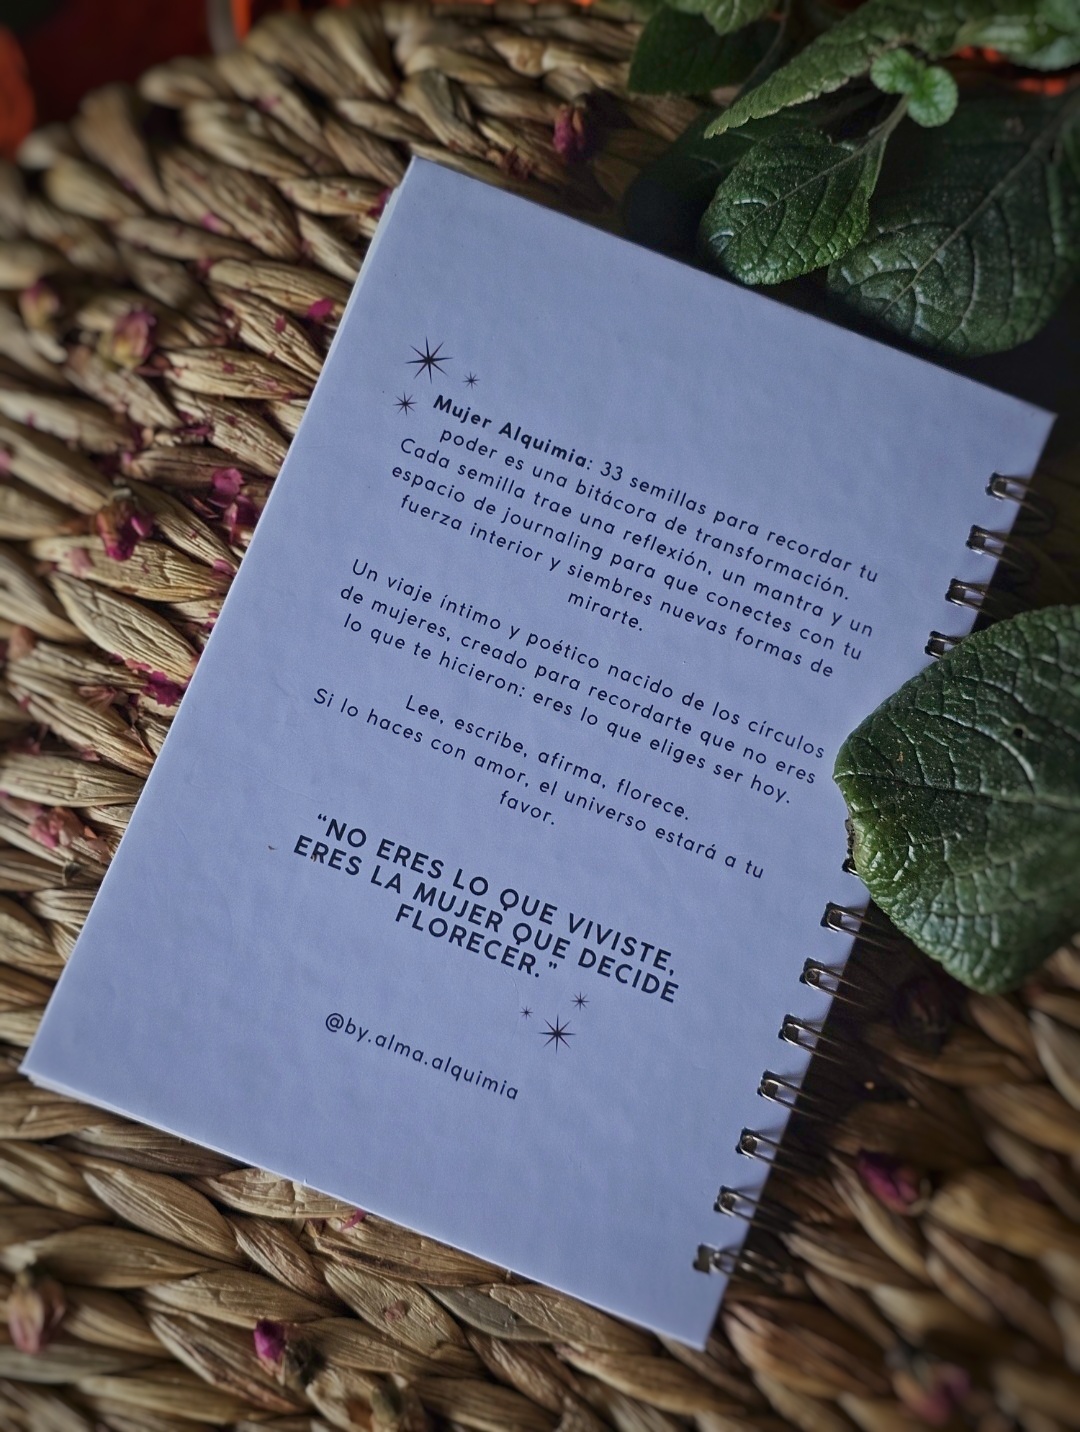 Mujer Alquimia: 33 semillas para recordar tu
poder es una bitácora de transformación.
Cada semilla trae una reflexión, un mantra y un
espacio de journaling para que conectes con tu
fuerza interior y siembres nuevas formas de
mirarte.
Un viaje íntimo y poético nacido de los círculos
de mujeres, creado para recordarte que no eres
lo que te hicieron: eres lo que eliges ser hoy.
Lee, escribe, afirma, florece.
Si lo haces con amor, el universo estará a tu
favor.
“NO ERES LO QUE VIVISTE,
ERES LA MUJER QUE DECIDE
FLORECER.”
@by.alma.alquimia